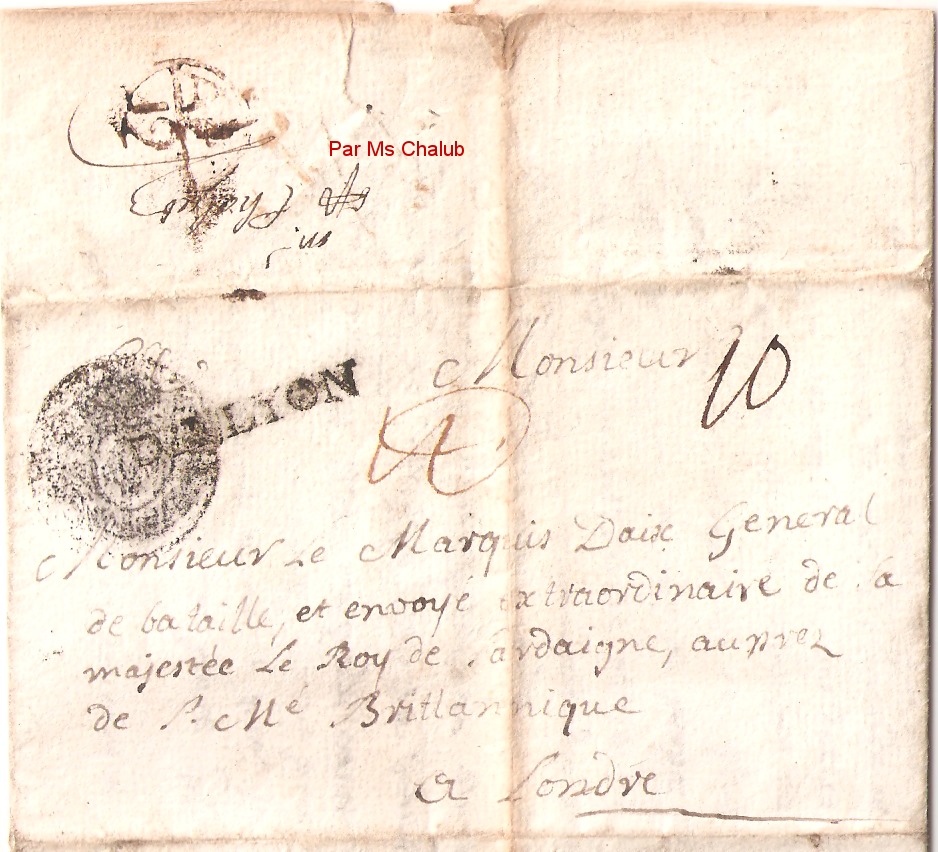 Par Ms Chalub
Monsieur 10
DE LYON
Monsieur Le Marquis Daix General
de bataille, et envoyé extraordinaire de Sa
majestée Le Roy de Sardaigne, auprez
de S. Mé Brittannique
a Londre